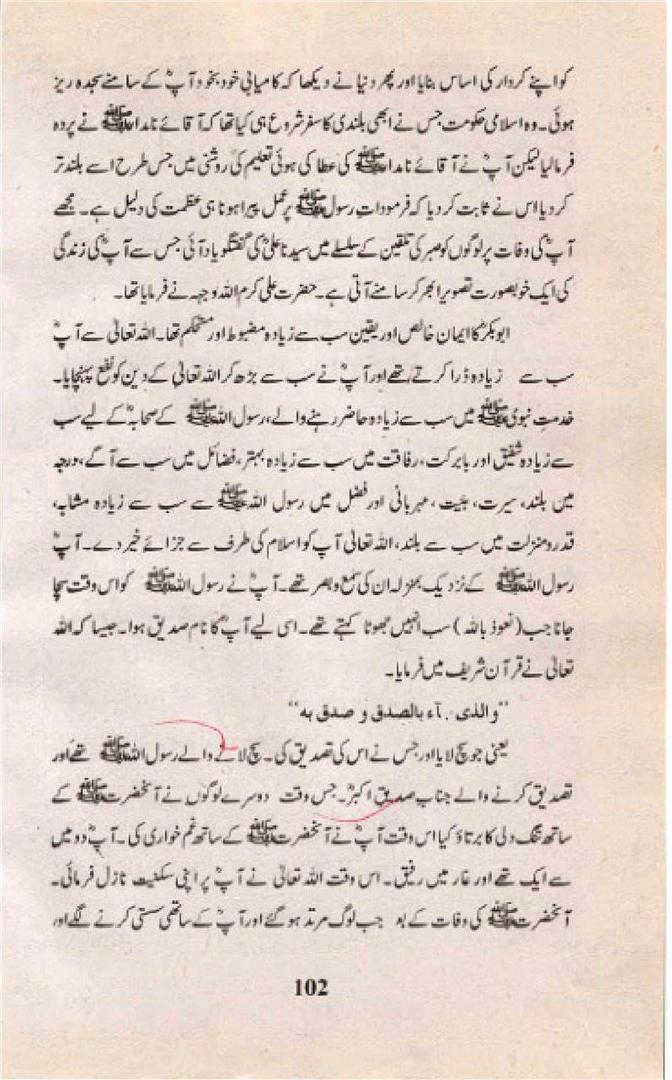 کو اپنے کردار کی اساس بنایا اور پھر دنیا نے دیکھا کہ کامیابی خود بخود آپؓ کے سامنے سجدہ ریز
ہوئی۔ وہ اسلامی حکومت جس نے ابھی بلندی کا سفر شروع ہی کیا تھا کہ آقائے نامدارﷺ نے پردہ
فرمالیا لیکن آپؓ نے آقائے نامدارﷺ کی عطا کی ہوئی تعلیم کی روشنی میں جس طرح اسے بلند تر
کردیا اس نے ثابت کردیا کہ فرموداتِ رسولﷺ پر عمل پیرا ہونا ہی عظمت کی دلیل ہے۔ مجھے
آپؓ کی وفات پر لوگوں کو صبر کی تلقین کے سلسلے میں سیدنا علیؓ کی گفتگو یاد آئی جس سے آپؓ کی زندگی
کی ایک خوبصورت تصویر ابھر کر سامنے آتی ہے۔ حضرت علی کرم اللہ وجہہ نے فرمایا تھا۔
ابوبکرؓ کا ایمان خالص اور یقین سب سے زیادہ مضبوط اور مستحکم تھا۔ اللہ تعالیٰ سے آپؓ
سب سے زیادہ ڈرا کرتے تھے اور آپؓ نے سب سے بڑھ کر اللہ تعالیٰ کے دین کو نفع پہنچایا۔
خدمتِ نبویﷺ میں سب سے زیادہ حاضر رہنے والے، رسول اللہﷺ کے صحابہؓ کے لیے سب
سے زیادہ شفیق اور بابرکت، رفاقت میں سب سے زیادہ بہتر، فضائل میں سب سے آگے، درجہ
میں بلند، سیرت، ہیت، مہربانی اور فضل میں رسول اللہﷺ سے سب سے زیادہ مشابہ،
قدر و منزلت میں سب سے بلند، اللہ تعالیٰ آپ کو اسلام کی طرف سے جزائے خیر دے۔ آپؓ
رسول اللہﷺ کے نزدیک بمنزلہ ان کی سمع و بصر تھے۔ آپؓ نے رسول اللہﷺ کو اس وقت سچا
جانا جب (نعوذ باللہ) سب انہیں جھوٹا کہتے تھے۔ اسی لیے آپؓ کا نام صدیق ہوا۔ جیسا کہ اللہ
تعالیٰ نے قرآن شریف میں فرمایا۔
”والذی . آء بالصدق و صدق به“
یعنی جو سچ لایا اور جس نے اس کی تصدیق کی۔ سچ لانے والے رسول اللہﷺ تھے اور
تصدیق کرنے والے جناب صدیق اکبرؓ۔ جس وقت دوسرے لوگوں نے آنحضرتﷺ کے
ساتھ تنگ دلی کا برتاؤ کیا اس وقت آپؓ نے آنحضرتﷺ کے ساتھ غم خواری کی۔ آپؓ دو میں
سے ایک تھے اور غار میں رفیق۔ اس وقت اللہ تعالیٰ نے آپؓ پر اپنی سکنیت نازل فرمائی۔
آنحضرتﷺ کی وفات کے بعد جب لوگ مرتد ہوگئے اور آپؓ کے ساتھی سستی کرنے لگے اور
102